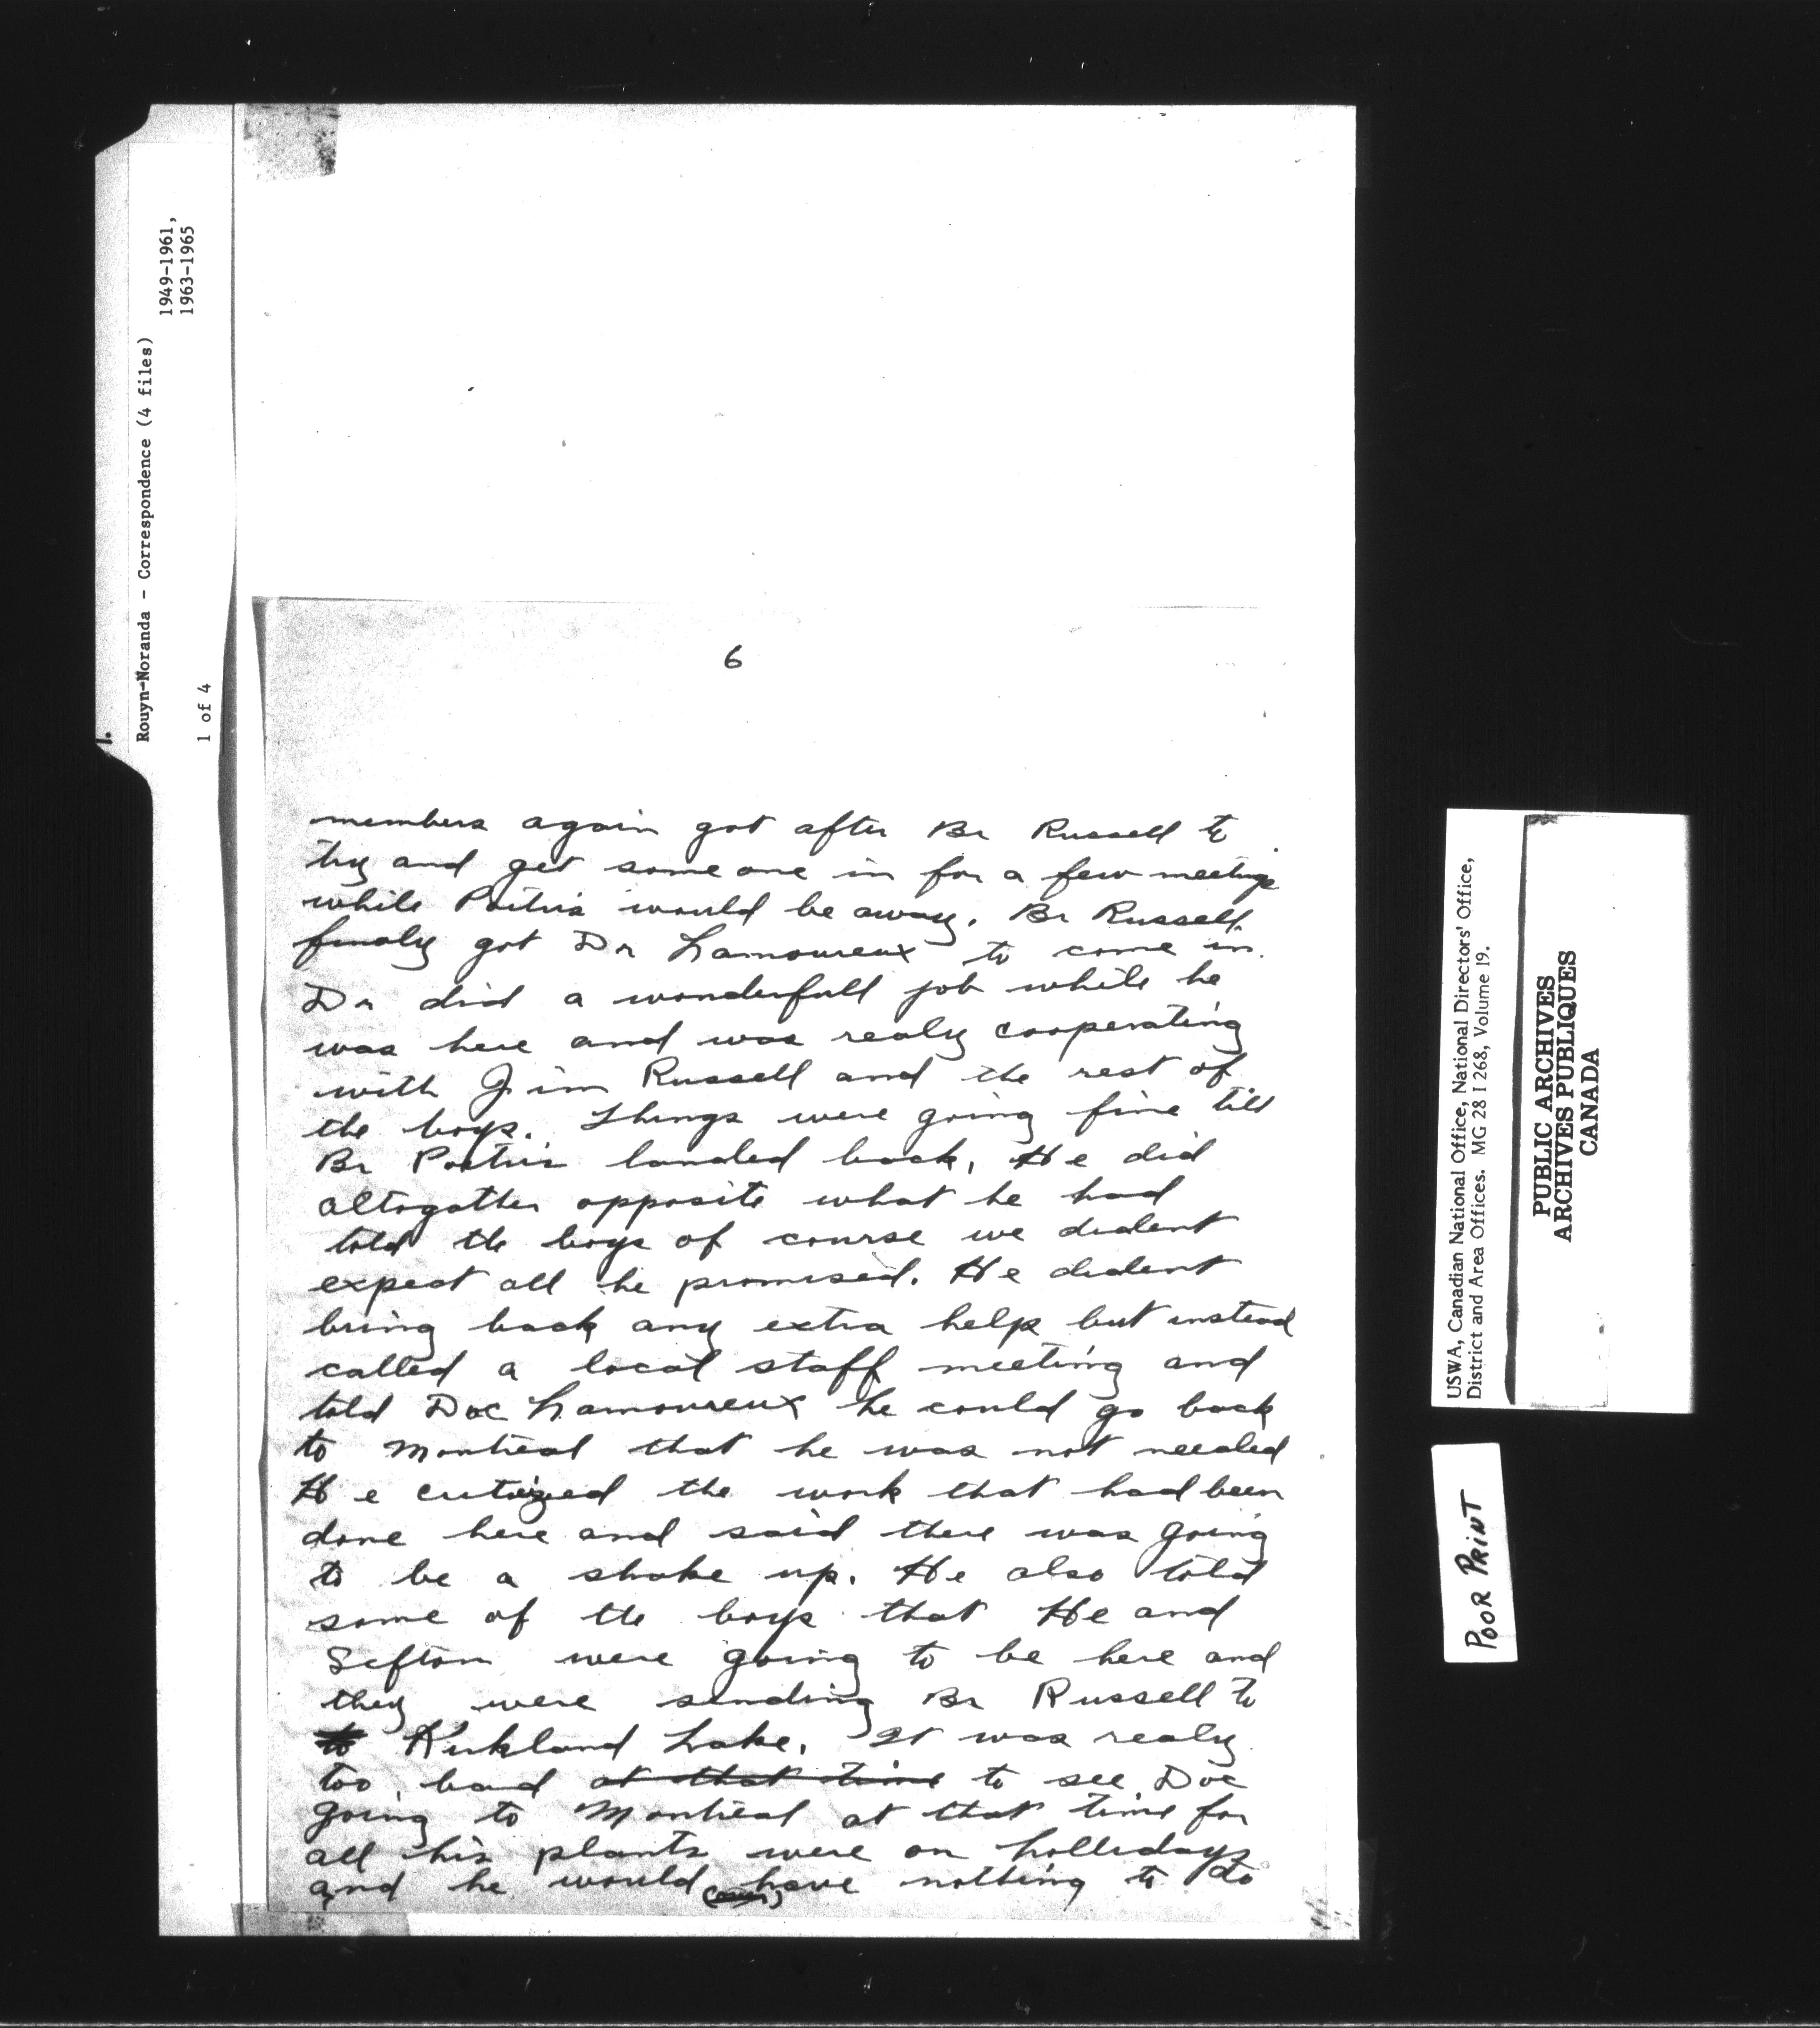 1.
Rouyn-Noranda - Correspondence (4 files)
1949-1961,
1963-1965
1 of 4
6
members again got after Br Russell to
try and get some one in for a few meetings
while Poitris would be away. Br Russell
finaly got Dr Lamoureux to come in.
Dr did a wonderfull job while he
was here and was realy cooperating
with Jim Russell and the rest of
the boys. Things were going fine till
Br Poitris landed back, He did
altogather opposite what he had
told the boys of course we dident
expect all he promised. He dident
bring back any extra help but instead
called a local staff meeting and
told Doc Lamoureux he could go back
to Montreal that he was not needed
He critisized the work that had been
done here and said there was going
to be a shake up. He also told
some of the boys that He and
Sefton were going to be here and
they were sending Br Russell to
to Kirkland Lake. It was realy
too bad at that time to see Doc
going to Montreal at that time for
all his plants were on hollidays
and he would have nothing to do
USWA, Canadian National Office, National Directors' Office,
District and Area Offices. MG 28 I 268, Volume 19.
PUBLIC ARCHIVES
ARCHIVES PUBLIQUES
CANADA
POOR PRINT